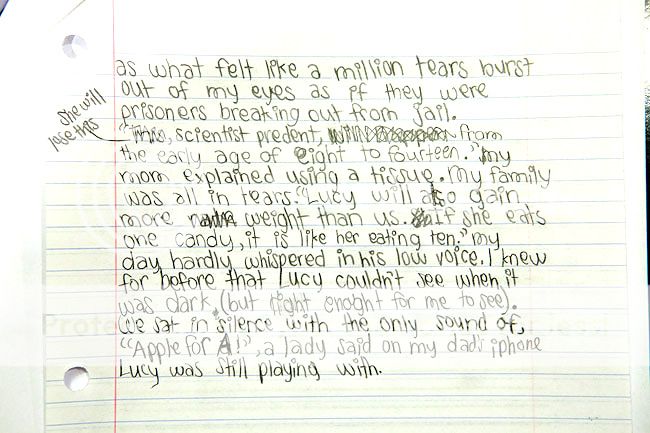 as what felt like a million tears burst
out of my eyes as if they were
prisoners breaking out from jail.
She will
lose this
"This, scientist predent, from
the early age of eight to fourteen." My
mom explained using a tissue. My family
was all in tears. "Lucy will also gain
more weight than us. If she eats
one candy, it is like her eating ten." my
day hardly whispered in his low voice. I knew
for before that Lucy couldn't see when it
was dark, (but light enoght for me to see).
We sat in silence with the only sound of,
"Apple for A!", a lady said on my dad's iphone
Lucy was still playing with.